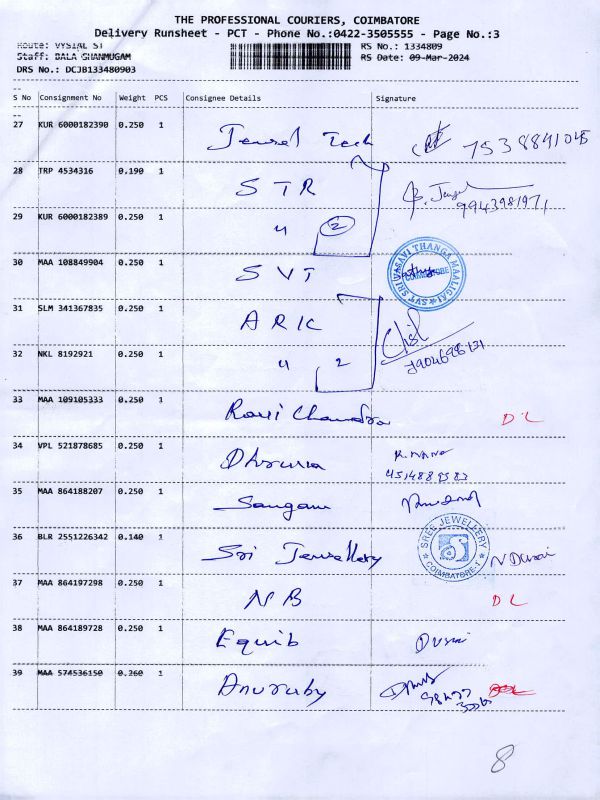 THE PROFESSIONAL COURIERS, COIMBATORE
Delivery Runsheet - PCT - Phone No.:0422-3505555 - Page No.:3
Route: VYSIAL ST RS No.: 1334809
Staff: BALA SHANMUGAM RS Date: 09-Mar-2024
DRS No.: DCJB133480903
S No Consignment No Weight PCS Consignee Details Signature
27 KUR 6000182390 0.250 1 Jewel Tech 7538841045
28 TRP 4534316 0.190 1 STR 9943981971
29 KUR 6000182389 0.250 1 " 2
30 MAA 108849904 0.250 1 SVT SVT SRI VASAVI THANGA MAALIGAI COIMBATORE
31 SLM 341367835 0.250 1 ARK
32 NKL 8192921 0.250 1 " 2
33 MAA 109105333 0.250 1 Ravi Chandra DL
34 VPL 521878685 0.250 1
35 MAA 864188207 0.250 1 Sangam
36 BLR 2551226342 0.140 1 Sri Jewellery SREE JEWELLERY COIMBATORE-1 N Durai
37 MAA 864197298 0.250 1 NB DL
38 MAA 864189728 0.250 1 Equib Durai
39 MAA 574536150 0.260 1 Anuruby
8